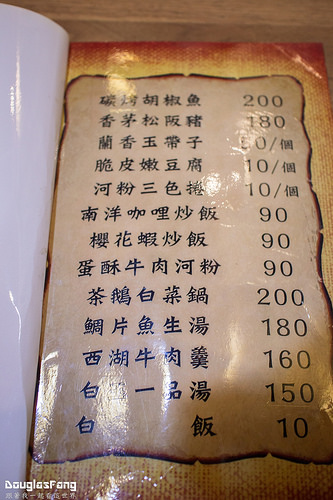 碳烤胡椒魚 200
香茅松阪豬 180
蘭香玉帶子 /個
脆皮嫩豆腐 10/個
河粉三色捲 10/個
南洋咖哩炒飯 90
櫻花蝦炒飯 90
蛋酥牛肉河粉 90
茶鵝白菜鍋 200
鯛片魚生湯 180
西湖牛肉羹 160
白 一品湯 150
白飯 10
DouglasFang